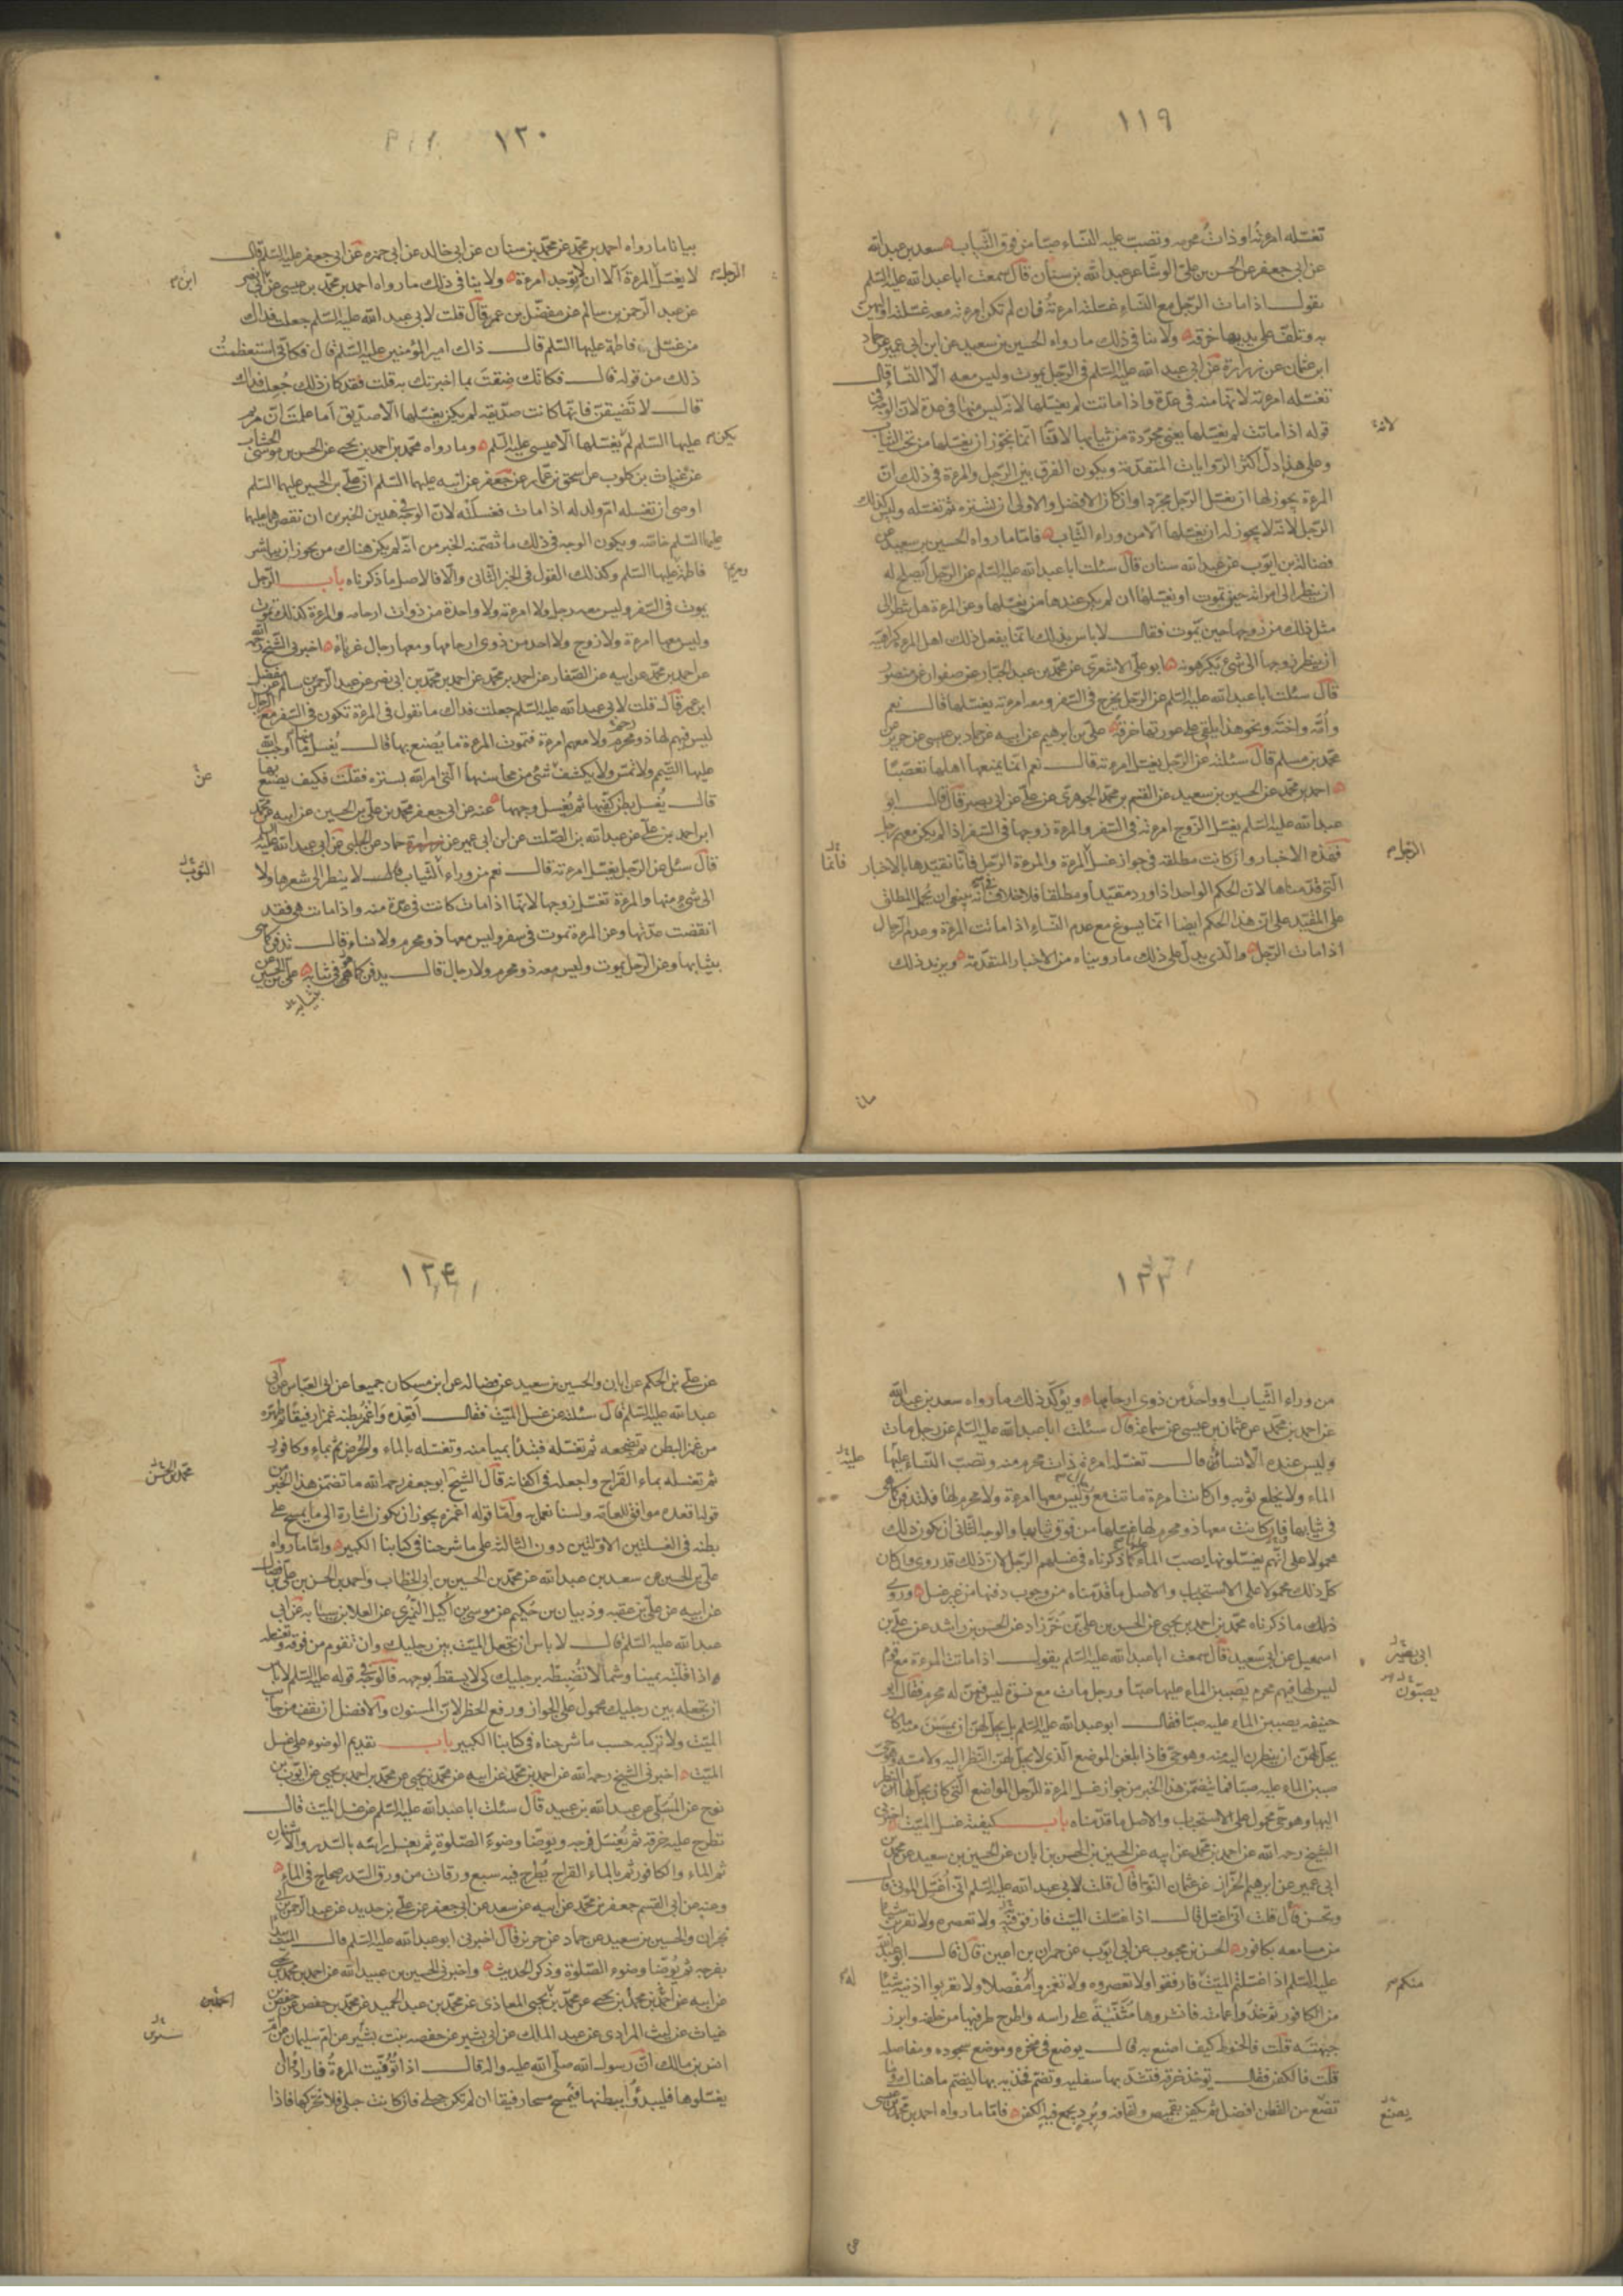 ١١٩
تغسّله امرءته او ذات محرمه وتصبّ عليه النّساء صبّا من فوق الثّياب سعد بن عبد الله
عن ابى جعفر عن الحسن بن على الوشّا عن عبد الله بن سنان قال سمعت ابا عبد الله عليه السّلم
يقول اذا مات الرّجل مع النّساء غسّلته امرءته فان لم تكن امرءته معه غسّلته اوليهنّ
به وتلفّ على يديها خرقة ولا ينافى ذلك ما رواه الحسين بن سعيد عن ابن ابى عمير عن حماد
ابن عثمان عن زرارة عن ابى عبد الله عليه السّلم فى الرّجل يموت وليس معه الّا النّساء قال
تغسّله امرءته لانّها منه فى عدّة واذا ماتت لم يغسّلها لانّه ليس منها فى عدة لانّ الوجه فى
قوله اذا ماتت لم يغسّلها يعنى مجرّدة من ثيابها لانّا انّما نجوّز ان يغسّلها من تحت الثّياب
لانه
وعلى هذا دلّ اكثر الرّوايات المتقدّمة ويكون الفرق بين الرّجل والمرءة فى ذلك انّ
المرءة يجوز لها ان تغسّل الرّجل مجرّدا وان كان الافضل والاولى ان تستره ثمّ تغسّله وليس كذلك
الرّجل لانّه لا يجوز له ان يغسّلها الّا من وراء الثّياب فامّا ما رواه الحسين بن سعيد عن
فضالة بن ايّوب عن عبد الله سنان قال سئلت ابا عبد الله عليه السّلم عن الرّجل أيصلح له
ان ينظر الى امرأته حين تموت او يغسّلها ان لم يكن عندها من يغسّلها وعن المرءة هل تنظر الى
مثل ذلك من زوجها حين تموت فقال لا باس بذلك انّما يفعل ذلك اهل المرءة كراهية
ان ينظر زوجها الى شىء يكرهونه ابو على الاشعرى عن محمّد بن عبد الجبّار عن صفوان عن منصور
قال سئلت ابا عبد الله عليه السّلم عن الرّجل يخرج فى السّفر ومعه امرءته يغسّلها قال نعم
وأمّه واخته ونحو هذا يلقى على عورتها خرقة علىّ بن ابرهيم عن ابيه عن حماد بن عيسى عن حريز عن
محمّد بن مسلم قال سئلته عن الرّجل يغسّل امرءته قال نعم انّما يمنعها اهلها تعصّبا
احمد بن محمّد عن الحسين بن سعيد عن القسم بن محمّد الجوهرى عن علىّ عن ابى بصير قال قال ابو
عبد الله عليه السّلم يغسّل الزّوج امرءته فى السّفر والمرءة زوجها فى السّفر اذا لم يكن معهم رجل
فهذه الاخبار وان كانت مطلقة فى جواز غسل المرءة والمرءة الرّجل فانّا نقيّدها بالاخبار
فانّما
التى قدّمناها لانّ الحكم الواحد اذا ورد مقيّدا ومطلقا فلا خلاف انّه ينبغى ان يحمل المطلق
على المقيّد على انّ هذا الحكم ايضا انّما يسوغ مع عدم النّساء اذا ماتت المرءة وعدم الرّجال
اذا مات الرّجل والّذى يدلّ على ذلك ما رويناه من الاخبار المتقدّمة ويزيد ذلك
بيانا
١٢٠
بيانا ما رواه احمد بن محمّد عن محمّد بن سنان عن ابى خالد عن ابى حمزه عن ابى جعفر عليه السّلم قال
الرجل لا يغسّل المرءة الّا ان لا توجد امرءة ولا ينافى ذلك ما رواه احمد بن محمّد بن عيسى عن ابى نصر
عن عبد الرّحمن بن سالم عن مفضّل بن عمر قال قلت لابى عبد الله عليه السّلم جعلت فداك
من غسّل فاطمة عليها السّلم قال ذاك امير المؤمنين عليه السّلم قال فكانّى استعظمت
ذلك من قوله قال فكانّك ضقت بما اخبرتك به قلت فقد كان ذلك جُعلت فداك
قال لا تضيقنّ فانّها كانت صدّيقة لم يكن يغسّلها الّا صدّيق اما علمت انّ مريم
عليها السّلم لم يغسّلها الّا عيسى عليه السّلم وما رواه محمّد بن احمد بن يحيى عن الحسن بن موسى الخشاب
يكن
عن غياث بن كلوب عن اسحق بن عمّار عن جعفر عن ابيه عليهما السّلم انّ علىّ بن الحسين عليهما السّلم
اوصى ان تغسّله امّ ولد له اذا مات فغسلته لانّ الوجه فى هذين الخبرين ان نقصرهما عليهما
عليهما السّلم خاصّة ويكون الوجه فى ذلك ما تضمّنه الخبر من انّه لم يكن هناك من يجوز ان يباشر
فاطمة عليها السّلم وكذلك القول فى الخبر الثّانى والّا فالاصل ما ذكرناه باب الرّجل
يموت فى السّفر وليس معه رجل ولا امرءته ولا واحدة من ذوات ارحامه والمرءة كذلك تموت
وليس معها امرءة ولا زوج ولا احد من ذوى ارحامها ومعها رجال غرباء اخبرنى الشّيخ رحمه الله
عن احمد بن محمّد عن ابيه عن الصّفار عن احمد بن محمّد عن احمد بن محمّد بن ابى نصر عن عبد الرّحمن بن سالم عن مفضل
ابن عمر قال قلت لابى عبد الله عليه السّلم جعلت فداك ما تقول فى المرءة تكون فى السّفر مع الرّجال
ليس فيهم لها ذو محرم ولا معهم امرءة فتموت المرءة ما يُصنع بها قال يُغسل منها ما أوجب الله
عليها التّيمّم ولا تمسّ ولا يكشف شئ من محاسنها الّتى امر الله بستره فقلت فكيف يصنع بها
عن
قال يُغسل بطن كفّيها ثم يُغسل وجهها عنه عن ابى جعفر محمّد بن علىّ بن الحسين عن ابيه عن محمّد
ابن احمد بن علىّ عن عبد الله بن الصّلت عن ابن ابى عمير عن حماد عن الحلبى عن ابى عبد الله عليه السّلم
قال سئل عن الرّجل يغسّل امرءته قال نعم من وراء الثّياب لا ينظر الى شعرها ولا
الثوب
الى شىء منها والمرءة تغسّل زوجها لانّها اذا مات كانت فى عدّة منه واذا ماتت هى فقد
انقضت عدّتها وعن المرءة تموت فى سفر وليس معها ذو محرم ولا نساء قال تدفن كما هى
بثيابها وعن الرّجل يموت وليس معه ذو محرم ولا رجال قال يدفن كما هو فى ثيابه علىّ بن الحسين عن
بثيابه
١٢٣
من وراء الثّياب او واحد من ذوى ارحامها ويؤكّد ذلك ما رواه سعد بن عبد الله
عن احمد بن محمّد عن عثمان بن عيسى عن سماعة قال سئلت ابا عبد الله عليه السّلم عن رجل مات
وليس عنده الّا نساء قال تغسّله امرءة ذات محرم منه وتصبّ النّساء عليها
عليه
الماء ولا يخلع ثوبه وان كانت امرءة ماتت مع رجال وليس معها امرءة ولا محرم لها فلتدفن كما هى
فى ثيابها فان كانت معها ذو محرم لها غسّلها من فوق ثيابها والوجه الثّانى ان يكون ذلك
محمولا على انّهم يغسّلونها بصبّ الماء كما ذكرناه فى غسلهم الرّجل لانّ ذلك قد روى وان كان
كلّ ذلك محمولا على الاستحباب والاصل ما قدّمناه من وجوب دفنها من غير غسل وروى
ذلك ما ذكرناه محمّد بن احمد بن يحيى عن الحسن بن علىّ بن خرّزاد عن الحسن بن راشد عن علىّ بن
اسمعيل عن ابى سعيد قال سمعت ابا عبد الله عليه السّلم يقول اذا ماتت المرءة مع قوم
ابى بصير
ليس لها فيهم محرم يصبّون الماء عليها صبّا ورجل مات مع نسوة ليس فيهنّ له محرم فقال ابو
يصبّون
حنيفة يصببن الماء عليه صبّا فقال ابو عبد الله عليه السّلم بل يحلّ لهنّ ان يمسسن منه ما كان
يحلّ لهنّ ان ينظرن اليه منه وهو حىّ فاذا بلغن الموضع الّذى لا يحلّ لهنّ النّظر اليه ولا مسّه وهو حىّ
صببن الماء عليه صبّا فما تضمّن هذا الخبر من جواز غسل المرءة للرّجل المواضع الّتى كان يحلّ لها النظر
اليها وهو حىّ محمول على الاستحباب والاصل ما قدّمناه باب كيفيّة غسل الميّت اخبرنى
الشّيخ رحمه الله عن احمد بن محمّد عن ابيه عن الحسين بن الحسن بن ابان عن الحسين بن سعيد عن محمّد بن
ابى عمير عن ابرهيم الخزاز عن عثمان النّوّا قال قلت لابى عبد الله عليه السّلم انّى أغسّل الموتى قال
وتحسن قال قلت انّى اغسل قال اذا غسّلت الميّت فارفق به ولا تعصره ولا تقربنّ شيئا
من مسامعه بكافور الحسن بن محبوب عن ابى ايّوب عن حمران بن اعين قال قال ابو عبد الله
عليه السّلم اذا غسّلتم الميّت فارفقوا ولا تعصروه ولا تغمزوا له مفصلا ولا تقربوا اذنيه شيئا
منكم
من الكافور ثم خذوا عمامته فانشروها مثنيّة على راسه واطرح طرفيها من خلفه وابرز
جبهته قلت فالحنوط كيف اصنع به قال يوضع فى منخره وموضع سجوده ومفاصله
قلت فالكفن فقال تؤخذ خرقة فتشدّ بها سفليه وتضمّ فخذيه بها ليضمّ ما هناك وما
تضع من القطن افضل ثم يكفن بقميص ولفافة وبُرد يجمع فيه الكفن فامّا ما رواه احمد بن محمّد بن عيسى
يصنع
عن
١٢٤
عن علىّ بن الحكم عن ابان والحسين بن سعيد عن فضالة عن ابن مسكان جميعا عن ابى العبّاس عن ابى
عبد الله عليه السّلم قال سئلته عن غسل الميّت فقال أقعِده واغمز بطنه غمزا رفيقا ثم طهّره
من غمز البطن ثم تضجعه ثم تغسّله فتبدأ بميامنه وتغسّله بالماء والحُرض ثم بماء وكافور
محمّد بن الحسن
ثم تغسّله بماء القَراح واجعله فى اكفانه قال الشّيخ ابو جعفر رحمه الله ما تضمّن هذا الخبر من
قوله تقعده موافق للعامّة ولسنا نعمل به وامّا قوله اغمزه يجوز ان يكون اشارة الى ما يمسح على
بطنه فى الغسلتين الاوّلتين دون الثّالثة على ما شرحنا فى كتابنا الكبير وامّا ما رواه
علىّ بن الحسين عن سعد بن عبد الله عن محمّد بن الحسين بن ابى الخطّاب واحمد بن الحسن بن علىّ بن فضال
عن ابيه عن علىّ بن عقبة وذبيان بن حكيم عن موسى بن اكيل النّميرى عن العلا بن سيابة عن ابى
عبد الله عليه السّلم قال لا باس ان تجعل الميّت بين رجليك وان تقوم من فوقه فتغسّله
اذا قلّبته يمينا وشمالا تضبطه برجليك كى لا يسقط بوجهه فالوجه فى قوله عليه السّلم لا باس
ان تجعله بين رجليك محمول على الجواز ورفع الحظر لانّ المسنون والافضل ان تقف من جانب
الميّت ولا تركبه حسب ما شرحناه فى كتابنا الكبير باب تقديم الوضوء على غسل
الميّت اخبرنى الشّيخ رحمه الله عن احمد بن محمّد عن ابيه عن محمّد بن يحيى عن محمّد بن احمد بن يحيى عن ايّوب بن
نوح عن المسلى عن عبد الله بن عبيد قال سئلت ابا عبد الله عليه السّلم عن غسل الميّت قال
تطرح عليه خرقة ثم يُغسّل فرجه ويوضّأ وضوءَ الصّلوة ثم يغسل راسه بالسّدر والاشنان
ثم الماء والكافور ثم بالماء القراح يُطرح فيه سبع ورقات من ورق السّدر صحاح فى الماء
وعنه عن ابى القسم جعفر بن محمّد عن ابيه عن سعد عن ابى جعفر عن علىّ بن حديد عن عبد الرّحمن بن ابى
نجران والحسين بن سعيد عن حماد عن حريز قال اخبرنى ابو عبد الله عليه السّلم قال الميّت يبدأ
بفرجه ثم يُوضّأ وضوء الصّلوة وذكر الحديث واخبرنى الحسين بن عبيد الله عن احمد بن محمّد بن يحيى
عن ابيه عن احمد بن محمّد بن يحيى عن محمّد بن يحيى المعاذى عن محمّد بن عبد الحميد عن محمّد بن حفص عن حفص بن
غياث عن ليث المرادى عن عبد الملك عن ابى بشير عن حفصه بنت بشير عن ام سليمان عن
انس بن مالك انّ رسول الله صلّى الله عليه واله قال اذا تُوُفّيت المرءة فارادوا ان
يغسّلوها فليبدؤا ببطنها فتُمسح مسحا رفيقا ان لم تكن حبلى فان كانت حبلى فلا تحركها فاذا